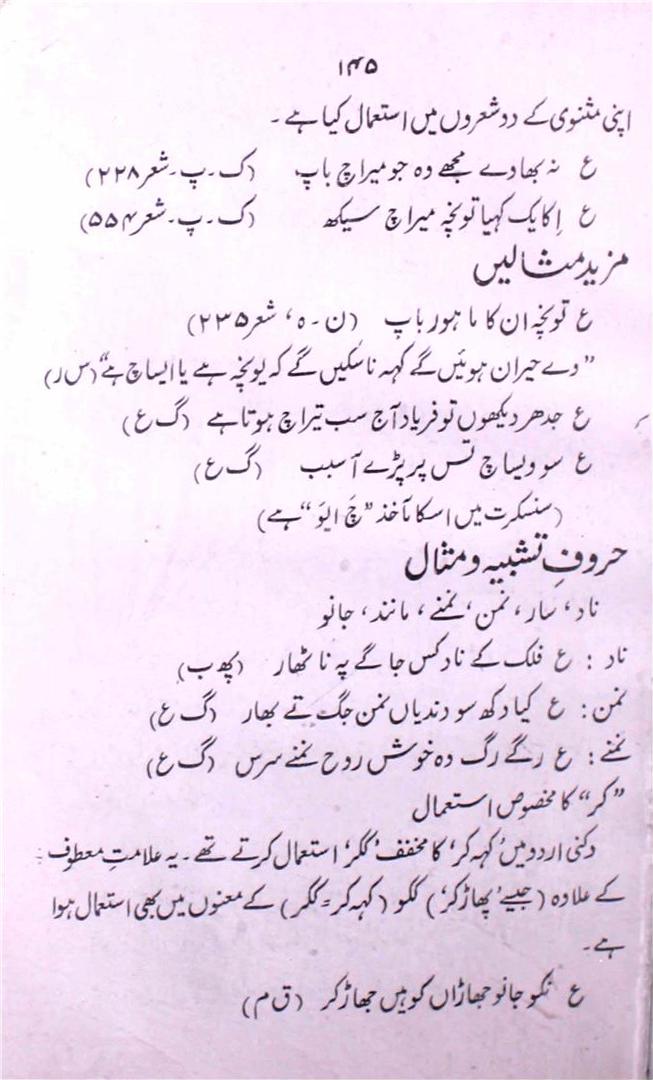 ۱۴۵
اپنی مثنوی کے دو شعروں میں استعمال کیا ہے۔
ع نہ بھادے مجھے وہ جو میراچ باپ (ک۔پ۔شعر ۲۲۸)
ع اِکایک کہیا تونچہ میراچ سیکھ (ک۔پ۔شعر ۵۵۴)
مزید مثالیں
ع تونچہ ان کا ما ہور باپ (ن۔ہ، شعر ۲۳۵)
”دے حیران ہوئیں گے کہہ نا سکیں گے کہ یونچہ ہے یا ایساچ ہے“ (س ر)
ع جدھر دیکھوں تو فریاد آج سب تیراچ ہوتا ہے (گ ع)
ع سو ویساچ تس پر پڑے آسبب (گ ع)
(سنسکرت میں اسکا مآخذ ”چَ ایوَ“ ہے)
حروفِ تشبیہ و مثال
ناد، سار، نمن، نمنے، مانند، جانو
ناد : ع فلک کے ناد کس جاگے پہ نا ٹھار (پھ ب)
نمن : ع کیا دکھ سو دندیاں نمن جگ تے بھار (گ ع)
نمنے : ع رگے رگ وہ خوش روح نمنے سرس (گ ع)
”کر“ کا مخصوص استعمال
دکنی اردو میں ’کہہ کر‘ کا مخفف ’ککر‘ استعمال کرتے تھے۔ یہ علامتِ معطوف
کے علاوہ (جیسے ’پھاڑ کر‘) ککو (کہہ کر = ککر) کے معنوں میں بھی استعمال ہوا
ہے۔
ع نکو جانو جھاڑاں کو ہیں جھاڑ کر (ق م)